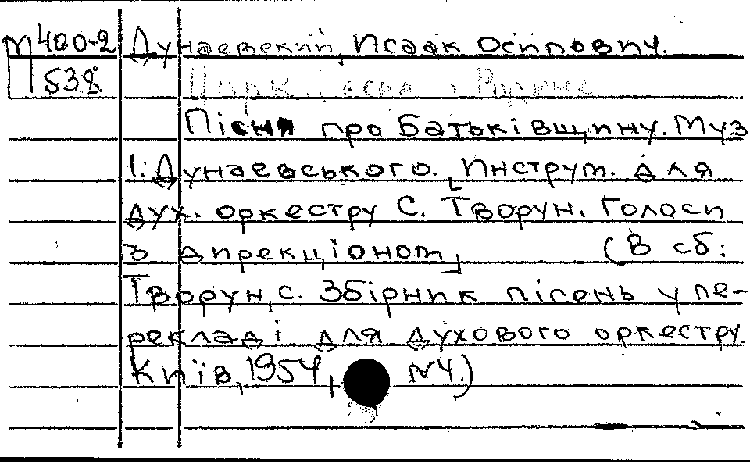 М400-2 Дунаевский, Исаак Осипович.
1538
Пісня про Батьківщину. Муз
І. Дунаевського. [Инструм. для
дух. оркестру С. Творун. Голоси
з дирекціоном] (В сб:
Творун, С. Збірник пісень у пе-
рекладі для духового оркестру.
Київ, 1954, №4.)